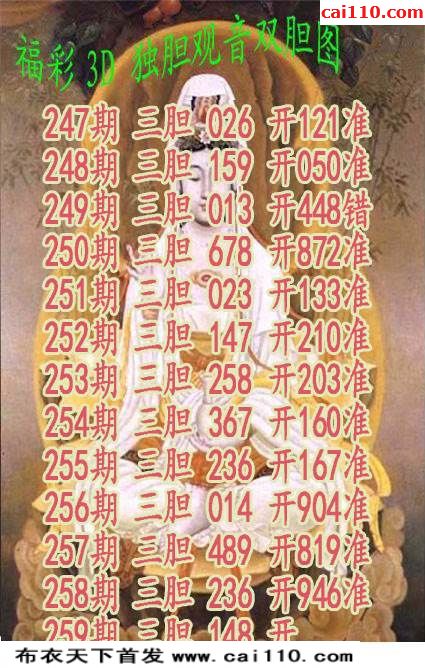 cai110.com
福彩3D 独胆观音双胆图
247期 三胆 026 开121准
248期 三胆 159 开050准
249期 三胆 013 开448错
250期 三胆 678 开872准
251期 三胆 023 开133准
252期 三胆 147 开210准
253期 三胆 258 开203准
254期 三胆 367 开160准
255期 三胆 236 开167准
256期 三胆 014 开904准
257期 三胆 489 开819准
258期 三胆 236 开946准
259期 三胆 148 开
布衣天下首发 www.cai110.com